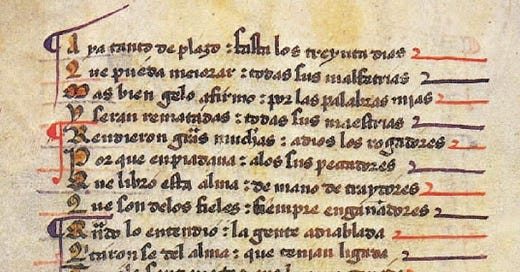 Aya tanto de plazo : fasta los treynta dias
Que pueda meiorar : todas sus malfetrias
Mas bien gelo afirmo : por las palabras mias
Y seran rematadas : todas sus maestrias
Rendieron gr̃as muchas : a dios los rogadores
Por que enpiadaua : alos sus pecadores
Que libro esta alma : de mano de traydores
Que son delos fieles : siempre engañadores
Qũdo lo entendio : la gente adiablada
Qtaron se del alma : que tenian ligada